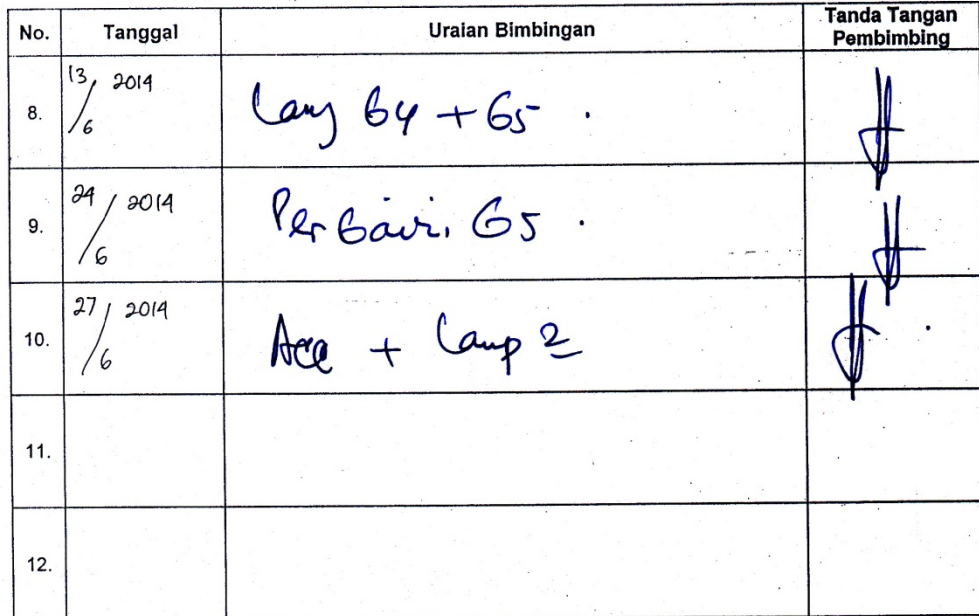 No. Tanggal Uraian Bimbingan Tanda Tangan Pembimbing
8. 13/6 2014 Lanj b4 + b5 .
9. 24/6 2014 Perbaiki b5 .
10. 27/6 2014 Acc + Lamp 2
11.
12.